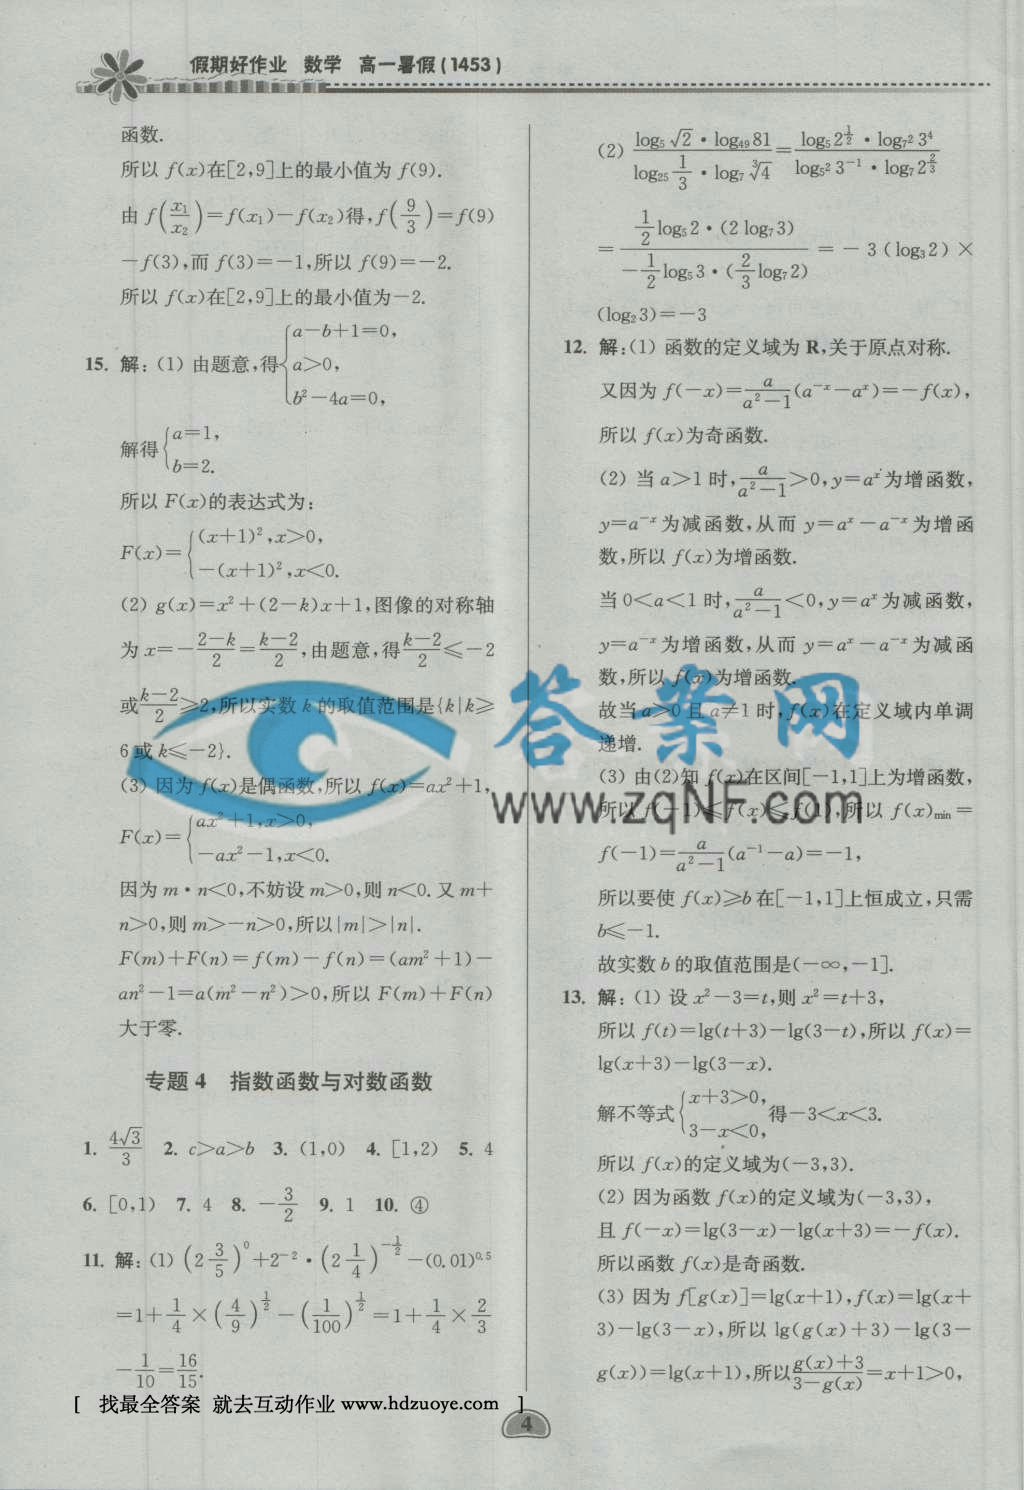 假期好作业 数学 高一暑假(1453)
函数.
所以 f(x)在[2,9]上的最小值为 f(9).
由 f(x₁/x₂)=f(x₁)-f(x₂)得,f(9/3)=f(9)
-f(3),而 f(3)=-1,所以 f(9)=-2.
所以 f(x)在[2,9]上的最小值为-2.
15. 解:(1) 由题意,得{a-b+1=0,
a>0,
b²-4a=0,
解得{a=1,
b=2.
所以 F(x)的表达式为:
F(x)={(x+1)²,x>0,
-(x+1)²,x<0.
(2) g(x)=x²+(2-k)x+1,图像的对称轴
为 x=-(2-k)/2=(k-2)/2,由题意,得(k-2)/2≤-2
或(k-2)/2≥2,所以实数 k 的取值范围是{k|k≥
6 或 k≤-2}.
(3) 因为 f(x)是偶函数,所以 f(x)=ax²+1,
F(x)={ax²+1,x>0,
-ax²-1,x<0.
因为 m·n<0,不妨设 m>0,则 n<0. 又 m+
n>0,则 m>-n>0,所以|m|>|n|.
F(m)+F(n)=f(m)-f(n)=(am²+1)-
an²-1=a(m²-n²)>0,所以 F(m)+F(n)
大于零.
专题 4 指数函数与对数函数
1. 4√3/3 2. c>a>b 3. (1,0) 4. [1,2) 5. 4
6. [0,1) 7. 4 8. -3/2 9. 1 10. ④
11. 解:(1) (2 3/5)^0+2^-2·(2 1/4)^(-1/2)-(0.01)^0.5
=1+1/4×(4/9)^(1/2)-(1/100)^(1/2)=1+1/4×2/3
-1/10=16/15.
(2) (log₅√2·log₄₉81)/(log₂₅(1/3)·log₇∛4)=(log₅2^(1/2)·log₇²3⁴)/(log₅²3^-1·log₇2^(2/3))
=(1/2 log₅2·(2 log₇3))/(-1/2 log₅3·(2/3 log₇2)) = -3(log₃2)×
(log₂3)=-3
12. 解:(1) 函数的定义域为 R,关于原点对称.
又因为 f(-x)=a/(a²-1)(a^-x-a^x)=-f(x),
所以 f(x)为奇函数.
(2) 当 a>1 时,a/(a²-1)>0,y=a^x 为增函数,
y=a^-x 为减函数,从而 y=a^x-a^-x 为增函
数,所以 f(x)为增函数.
当 0<a<1 时,a/(a²-1)<0,y=a^x 为减函数,
y=a^-x 为增函数,从而 y=a^x-a^-x 为减函
数,所以 f(x)为增函数.
故当 a>0 且 a≠1 时,f(x)在定义域内单调
递增.
(3) 由(2)知 f(x)在区间[-1,1]上为增函数,
所以 f(-1)≤f(x)≤f(1),所以 f(x)min=
f(-1)=a/(a²-1)(a^-1-a)=-1,
所以要使 f(x)≥b 在[-1,1]上恒成立,只需
b≤-1.
故实数 b 的取值范围是(-∞,-1].
13. 解:(1) 设 x²-3=t,则 x²=t+3,
所以 f(t)=lg(t+3)-lg(3-t),所以 f(x)=
lg(x+3)-lg(3-x).
解不等式{x+3>0,
3-x<0,得-3<x<3.
所以 f(x)的定义域为(-3,3).
(2) 因为函数 f(x)的定义域为(-3,3),
且 f(-x)=lg(3-x)-lg(x+3)=-f(x).
所以函数 f(x)是奇函数.
(3) 因为 f[g(x)]=lg(x+1),f(x)=lg(x+
3)-lg(3-x),所以 lg(g(x)+3)-lg(3-
g(x))=lg(x+1),所以(g(x)+3)/(3-g(x))=x+1>0,
答案网
www.zqNF.com
[ 找最全答案 就去互动作业 www.hdzuoye.com ]
4